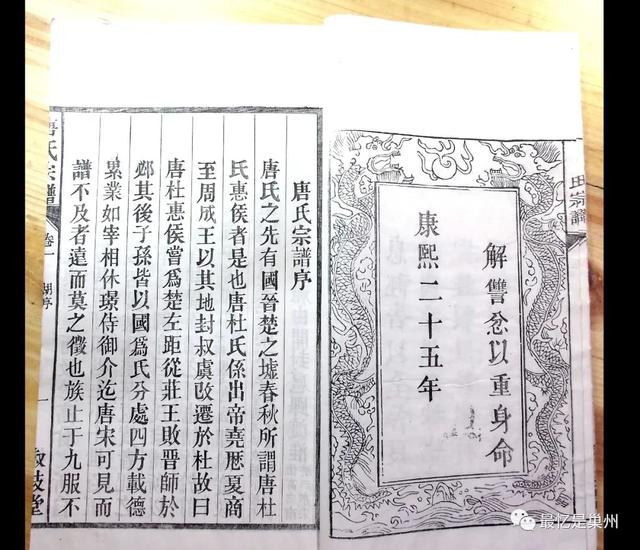 解讐忿以重身命
康熙二十五年
唐氏宗譜序
唐氏之先有國晉楚之墟春秋所謂唐杜
氏惠侯者是也唐杜氏係出帝堯歷夏商
至周成王以其地封叔虞改遷於杜故曰
唐杜惠侯嘗爲楚左距從莊王敗晉師於
邲其後子孫皆以國爲氏分處四方載德
累業如宰相休璟侍御介迄唐宋可見而
譜不及者遠而莫之徵也族止于九服不
唐氏宗譜
卷一
胡序
一
氏宗譜
最忆是巢州